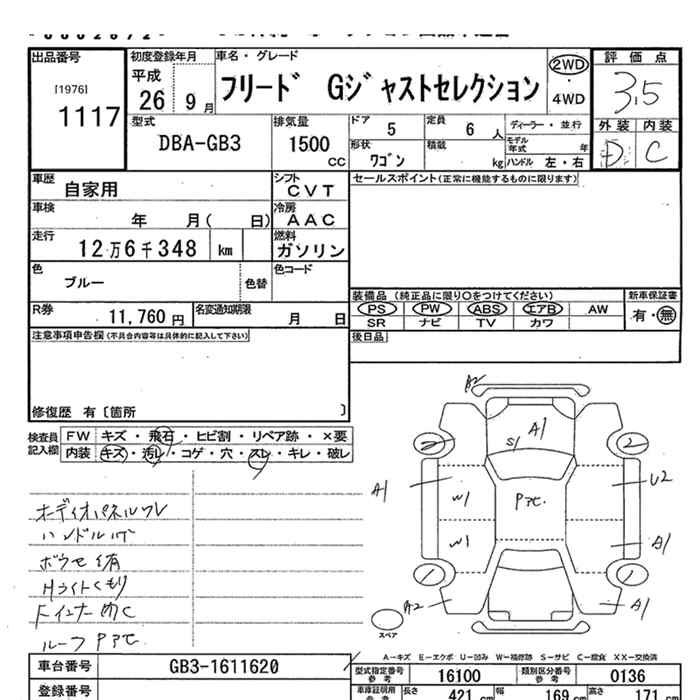 出品番号
[1976]
1117
初度登録年月
平成
26 9月
車名・グレード
フリード Gジャストセレクション
2WD
・
4WD
評価点
3.5
外装 内装
D C
型式
DBA-GB3
排気量
1500
cc
ドア
5
定員
6 人
ディーラー・並行
形状
ワゴン
積載
kg
モデル年式 年
ハンドル 左・右
車歴
自家用
シフト
CVT
セールスポイント(正常に機能するものに限ります)
車検
年 月( 日)
冷房
AAC
走行
12万6千348 km
燃料
ガソリン
色
ブルー
色替
色コード
装備品 (純正品に限り○をつけてください)
新車保証書
PS PW ABS エアB AW
有・無
SR ナビ TV カワ
R券
11,760円
名変通知期限
月 日
後日品
注意事項申告欄(不具合内容等は具体的に記入して下さい)
修復歴 有〔箇所 〕
検査員
記入欄
FW キズ・飛石・ヒビ割・リペア跡・×要
内装 キズ・汚レ・コゲ・穴・スレ・キレ・破レ
オーディオパネルワレ
ハンドル
ボウセ
Hライトくもり
ルーフ Pアセ
A2
A1
S1
2
2
A1
U2
W1
Pアセ
W1
A1
1
1
A2
A1
スペア
A-キズ E-エクボ U-凹み W-補修跡 S-サビ C-腐食 XX-交換済
車台番号
GB3-1611620
型式指定番号
参考
16100
類別区分番号
参考
0136
登録番号
車庫証明用
参考
長さ
421 cm
幅
169 cm
高さ
171 cm